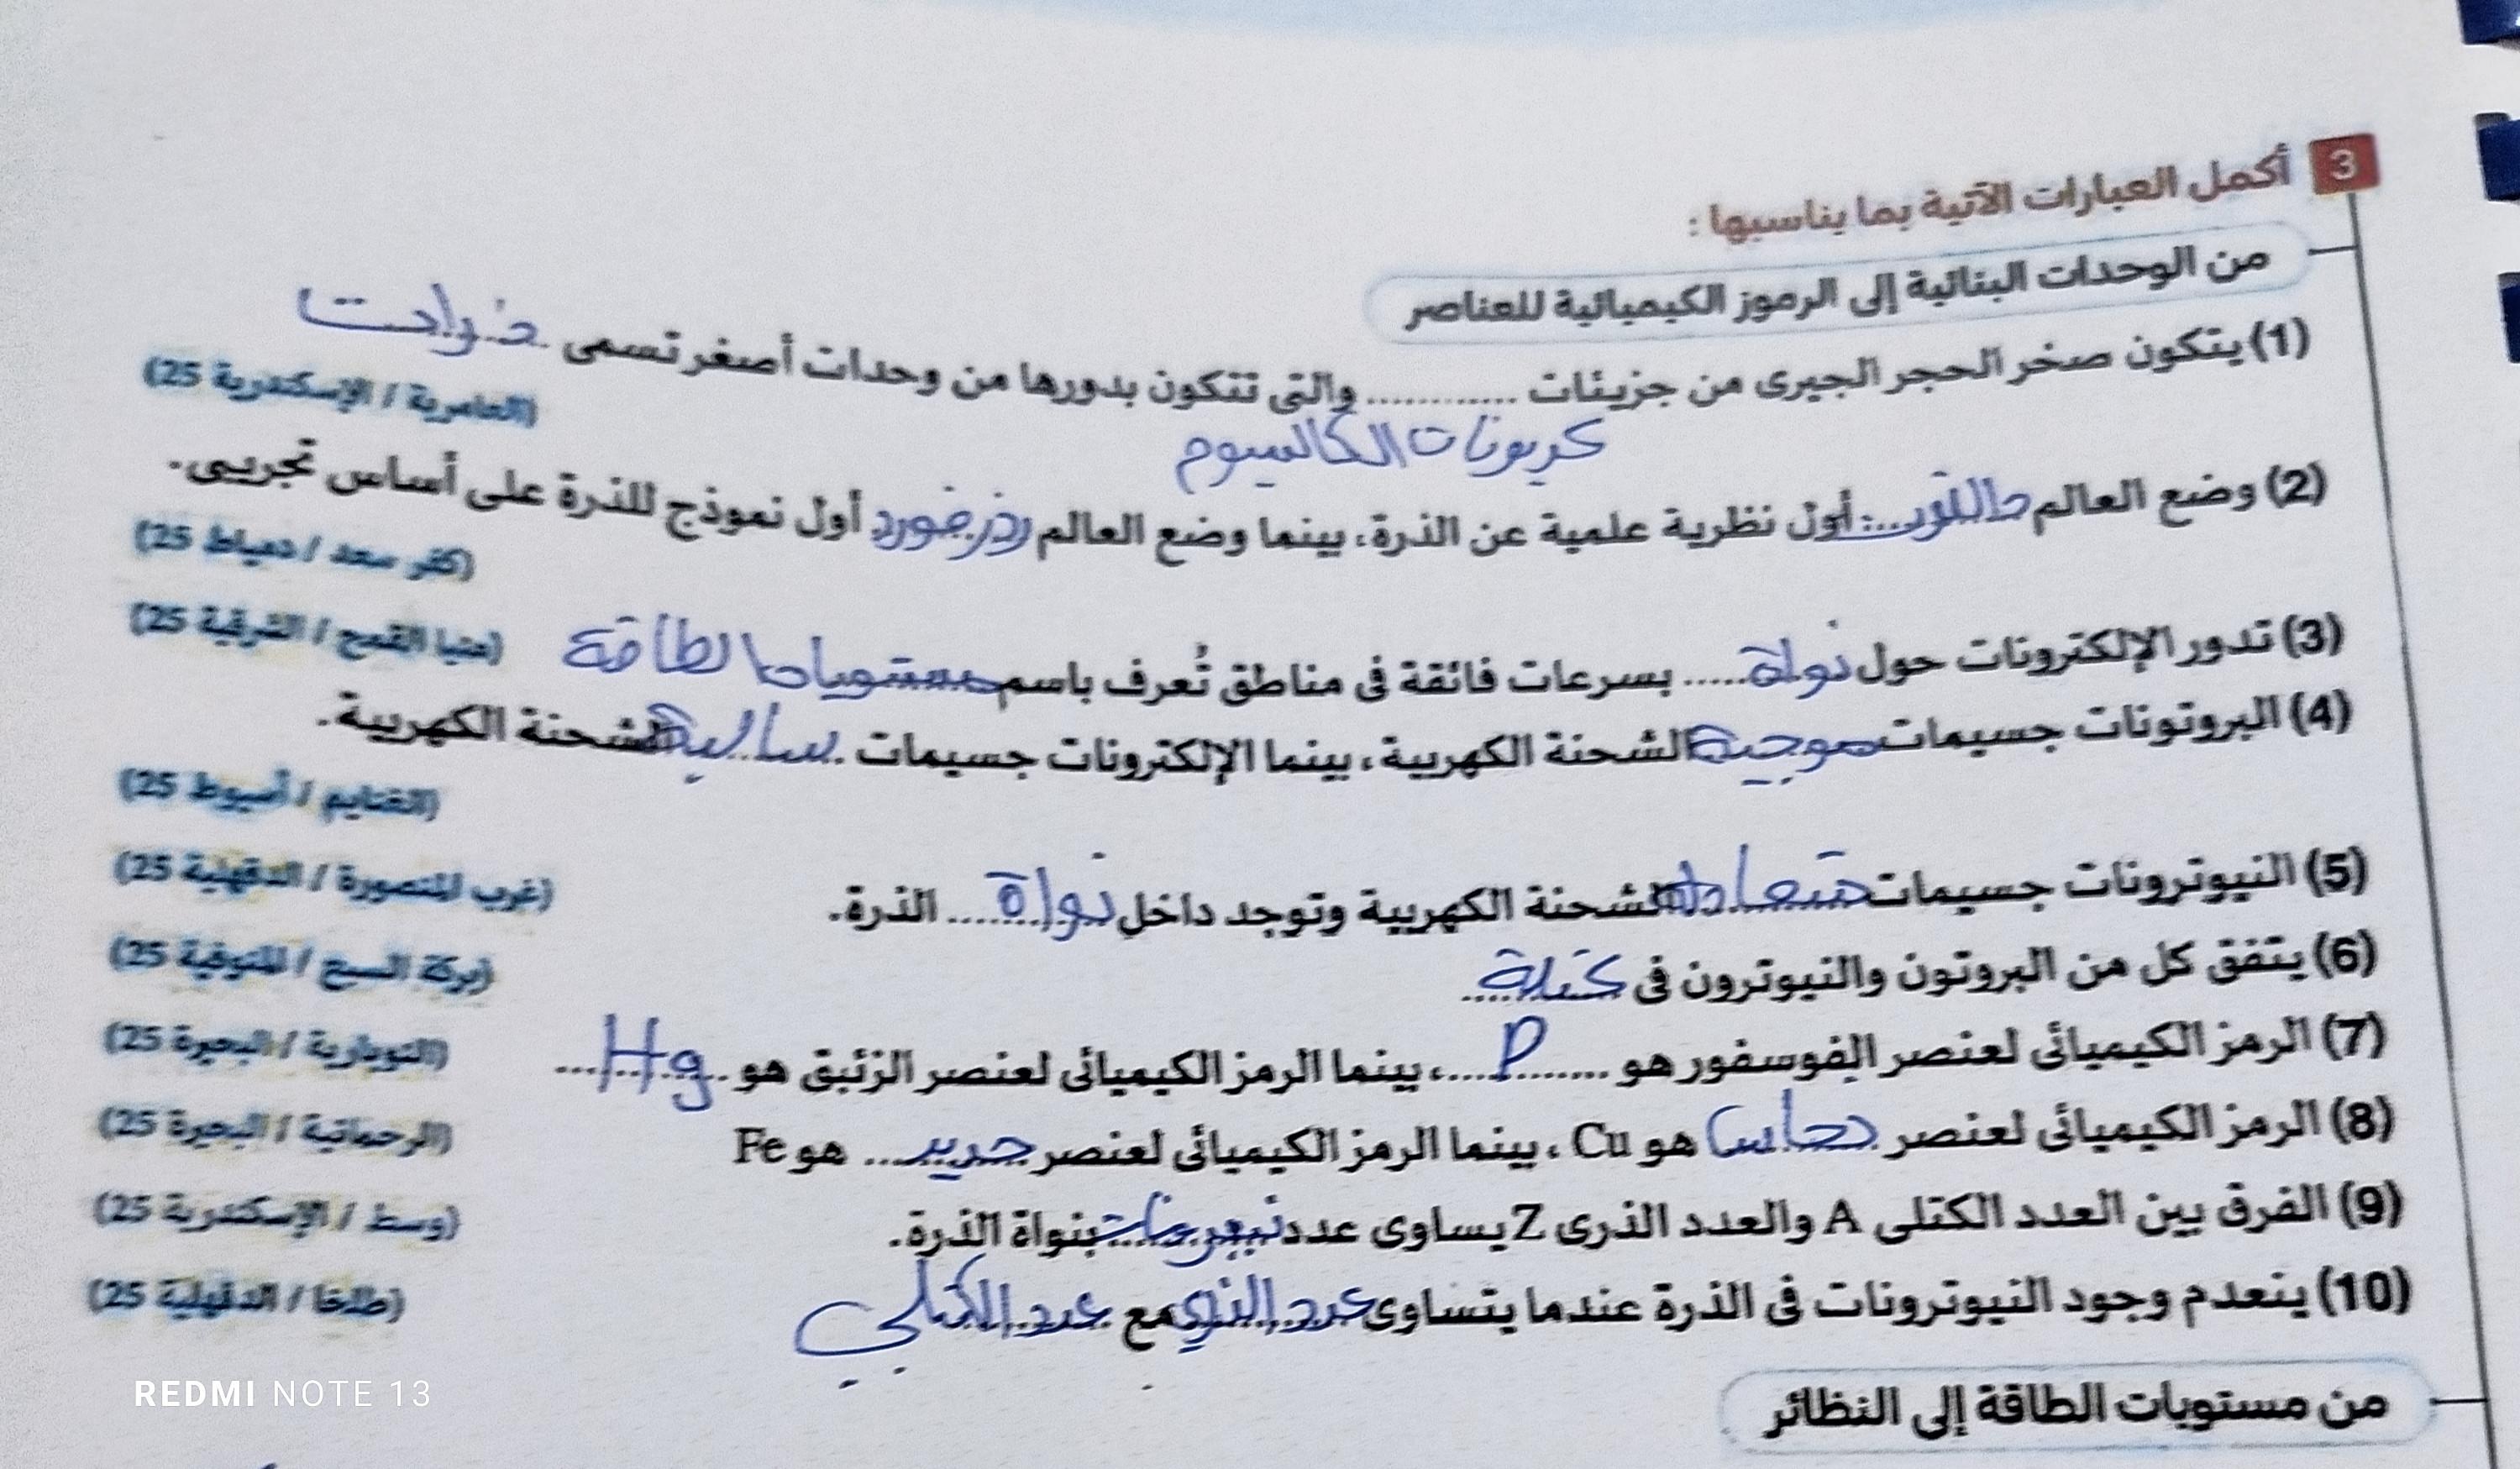 3 أكمل العبارات الآتية بما يناسبها :
من الوحدات البنائية إلى الرموز الكيميائية للعناصر
(1) يتكون صخر الحجر الجيرى من جزيئات ............ والتى تتكون بدورها من وحدات أصغر تسمى ذرات
كربونات الكالسيوم
(العامرية / الإسكندرية 25)
(2) وضع العالم دالتون أول نظرية علمية عن الذرة، بينما وضع العالم رذرفورد أول نموذج للذرة على أساس تجريبى.
(كفر سعد / دمياط 25)
(3) تدور الإلكترونات حول نواة ..... بسرعات فائقة فى مناطق تُعرف باسم مستويات الطاقة (منيا القمح / الشرقية 25)
(4) البروتونات جسيمات موجبة الشحنة الكهربية، بينما الإلكترونات جسيمات سالبة الشحنة الكهربية.
(الغنايم / أسيوط 25)
(5) النيوترونات جسيمات متعادلة الشحنة الكهربية وتوجد داخل نواة ..... الذرة. (غرب المنصورة / الدقهلية 25)
(6) يتفق كل من البروتون والنيوترون فى كتلة (بركة السبع / المنوفية 25)
(7) الرمز الكيميائى لعنصر الفوسفور هو P ، بينما الرمز الكيميائى لعنصر الزئبق هو Hg (النوبارية / البحيرة 25)
(8) الرمز الكيميائى لعنصر نحاس هو Cu ، بينما الرمز الكيميائى لعنصر حديد ... هو Fe (الرحمانية / البحيرة 25)
(9) الفرق بين العدد الكتلى A والعدد الذرى Z يساوى عدد بنواة الذرة. (وسط / الإسكندرية 25)
(10) ينعدم وجود النيوترونات فى الذرة عندما يتساوى عدد الذري مع عدد الكتلي (طلخا / الدقهلية 25)
من مستويات الطاقة إلى النظائر
REDMI NOTE 13